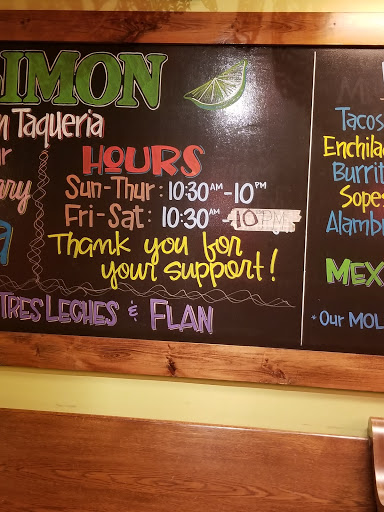 SIMON
n Taqueria
HOURS
Sun-Thur: 10:30AM-10PM
Fri-Sat: 10:30AM-10PM
Thank you for
your support!
TRES LECHES & FLAN
Tacos
Enchilad
Burrit
Sopes
Alambr
MEX
* Our MOL